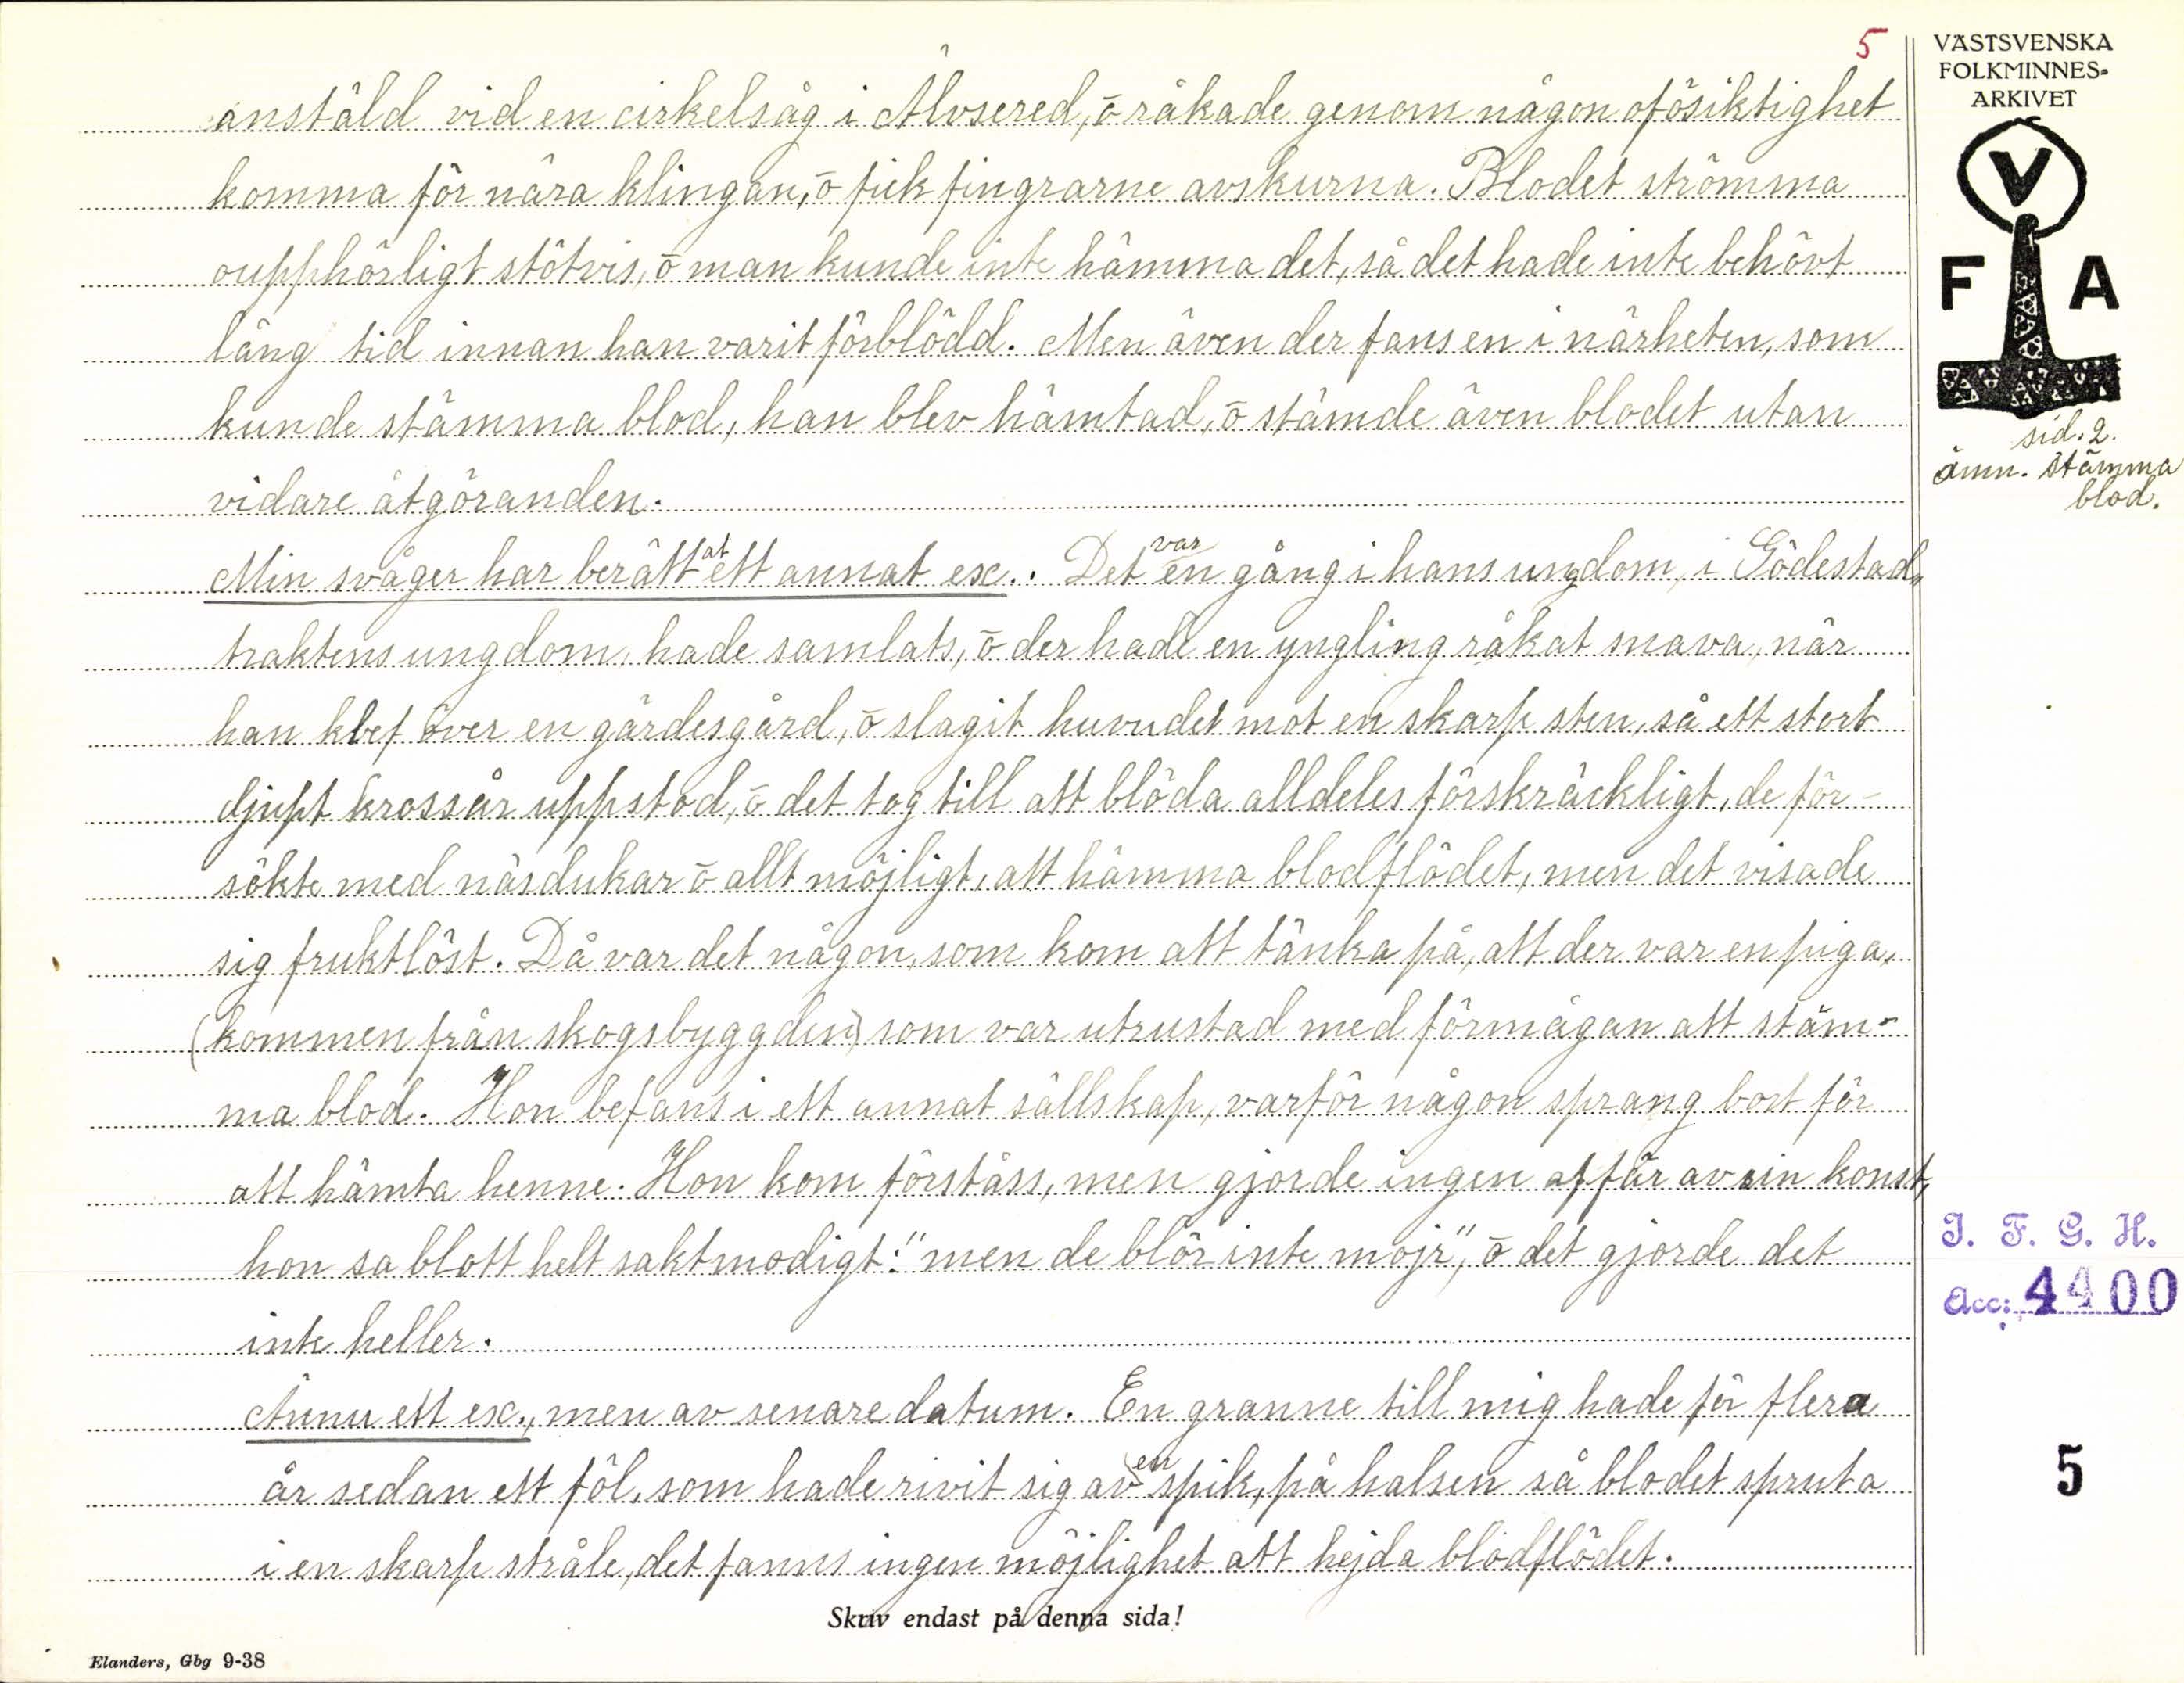 5
anstäld vid en cirkelsåg i Älvsered, ō råkade genom någon ofösiktighet
komma för nära klingan, ō fick fingrarne avskurna. Blodet strömma
oupphörligt stötvis, ō man kunde inte hämma det, så det hade inte behövt
lång tid innan han varit förblödd. Men även der fans en i närheten, som
kunde stämma blod, han blev hämtad, ō stämde även blodet utan
vidare åtgöranden.
Min svåger har berättat ett annat ex.. Det var en gång i hans ungdom, i Gödestad,
traktens ungdom, hade samlats, ō der hade en yngling råkat snava, när
han klef över en gärdesgård, ō slagit huvudet mot en skarp sten, så ett stort
djupt krossår uppstod, ō det tog till att blöda alldeles förskräckligt, de för-
sökte med näsdukar ō allt möjligt, att hämma blodflödet, men det visade
sig fruktlöst. Då var det någon, som kom att tänka på, att der var en piga,
(kommen från skogsbyggden) som var utrustad med förmågan att stäm-
ma blod. Hon befans i ett annat sällskap, varför någon sprang bort för
att hämta henne. Hon kom förståss, men gjorde ingen affär av sin konst,
hon sa blott helt saktmodigt: "men de blör inte mojr", ō det gjorde det
inte heller.
Ännu ett ex., men av senare datum. En granne till mig hade för flera
år sedan ett föl, som hade rivit sig av en spik, på halsen så blodet spruta
i en skarp stråle, det fanns ingen möjlighet att hejda blodflödet.
Skriv endast på denna sida!
Elanders, Gbg 9-38
VÄSTSVENSKA
FOLKMINNES-
ARKIVET
V
F A
sid. 2.
ämn. stämma
blod.
I. F. G. H.
Acc: 4400
5